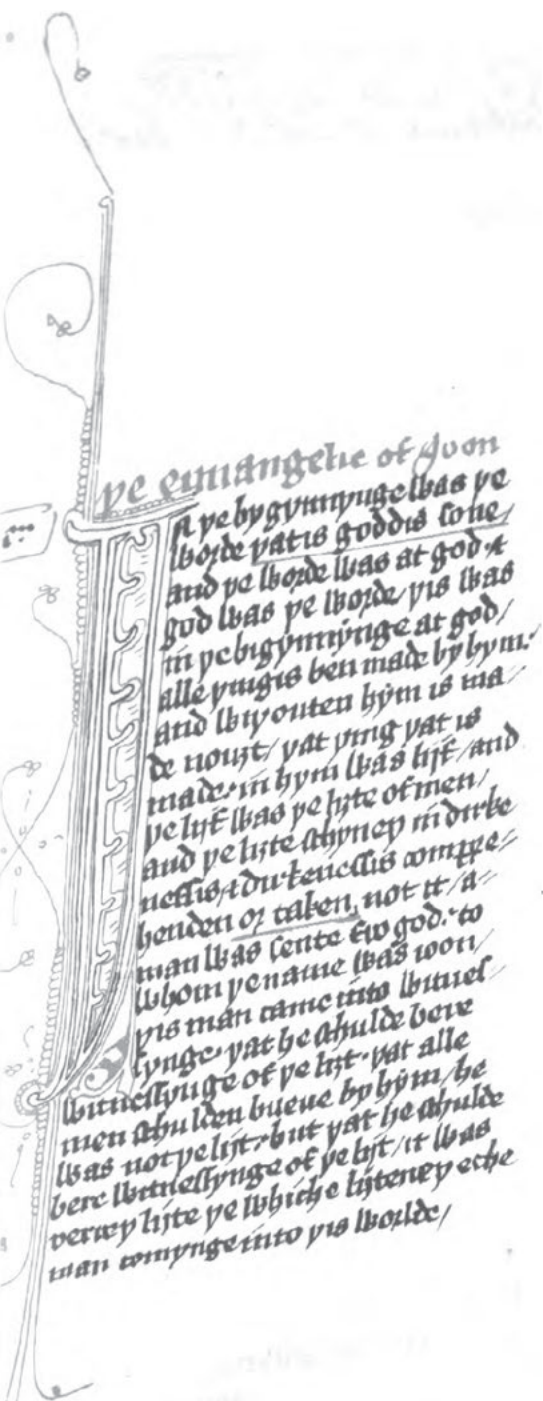 þe euuangelie of Joon
In þe bygynnynge was þe
worde þat is goddis sone/
and þe worde was at god ⁊
god was þe worde/ þis was
in þe bigynnynge at god/
alle þingis ben made by hym:
and wiþouten hym is ma//
de nouȝt/ þat þing þat is
made· in hym was lijf/ and
þe lijf was þe liȝte of men/
and þe liȝte schyneþ in dirke
nessis/ ⁊ dirkenessis compre//
henden or taken not it/ a//
man was sente fro god· to
whom þe name was ioon/
þis man came into witnes//
synge· þat he schulde bere
witnessynge of þe liȝt· þat alle
men schulden bileue by hym/ he
was not þe liȝt· but þat he schulde
bere witnessynge of þe liȝt/ it was
verrey liȝte þe whiche liȝteneþ eche
man comynge into þis worlde/